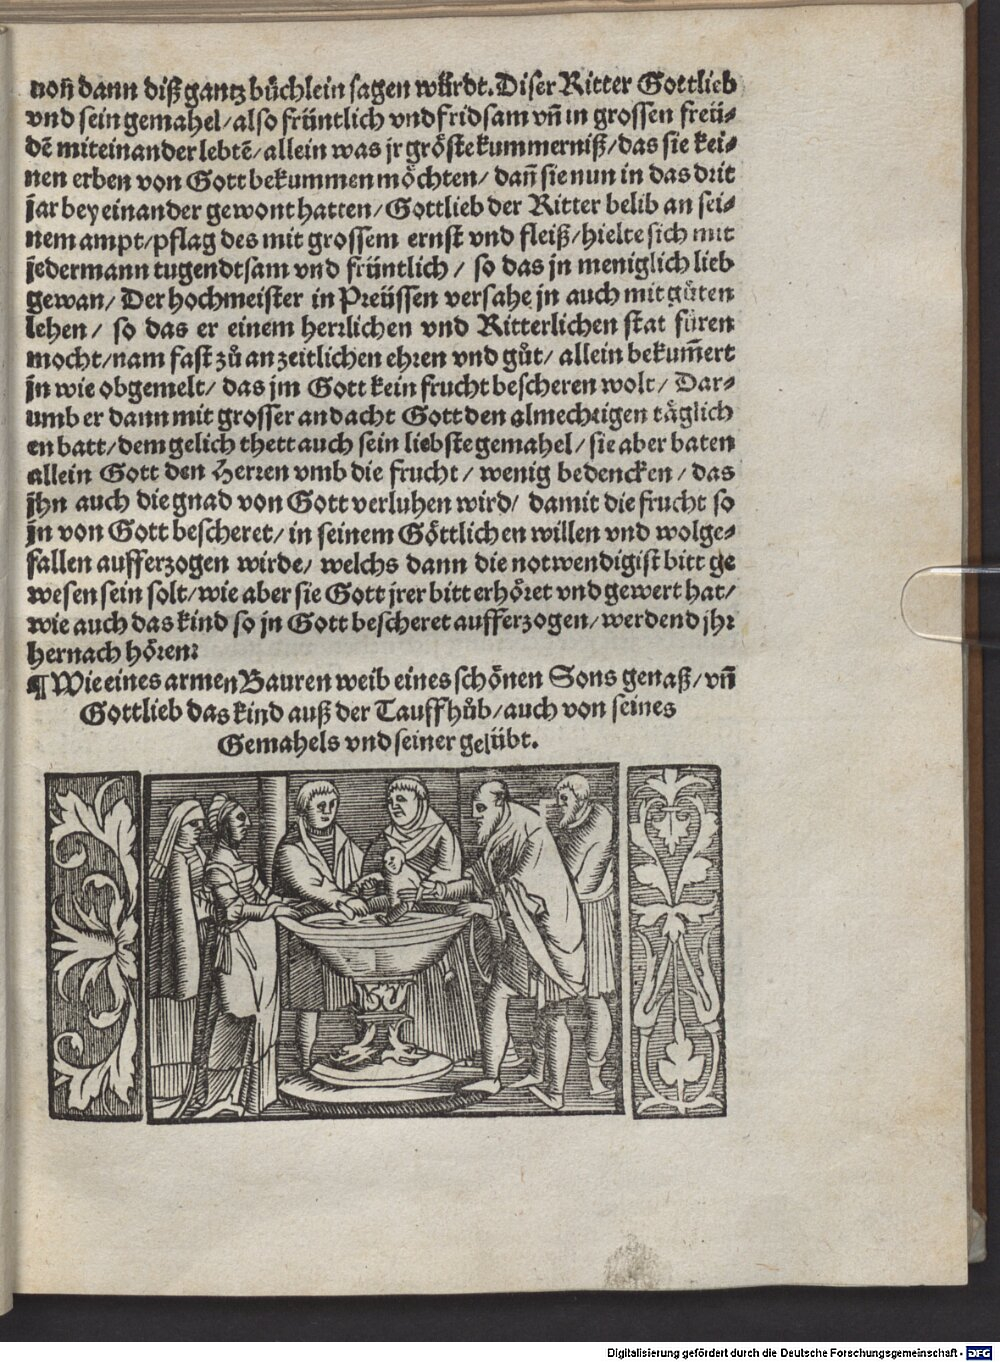 uoñ dann diß gantz bůchlein sagen würdt. Diser Ritter Gottlieb
vnd sein gemahel / also früntlich vnd fridsam vñ in grossen freü⸗
dẽ miteinander lebtẽ / allein was jr gröste kummerniß / das sie kei⸗
nen erben von Gott bekummen möchten / dañ sie nun in das drit
jar bey einander gewont hatten / Gottlieb der Ritter belib an sei⸗
nem ampt / pflag des mit grossem ernst vnd fleiß / hielte sich mit
jedermann tugendtsam vnd früntlich / so das jn meniglich lieb
gewan / Der hochmeister in Preüssen versahe jn auch mit gůten
lehen / so das er einem herrlichen vnd Ritterlichen stat füren
mocht / nam fast zů an zeitlichen ehren vnd gůt / allein bekum̃ert
jn wie obgemelt / das jm Gott kein frucht bescheren wolt / Dar⸗
umb er dann mit grosser andacht Gott den almechtigen täglich
en batt / dem gelich thett auch sein liebste gemahel / sie aber baten
allein Gott den Herren vmb die frucht / wenig bedencken / das
jhn auch die gnad von Gott verluhen wird / damit die frucht so
jn von Gott bescheret / in seinem Göttlichen willen vnd wolge⸗
fallen aufferzogen wirde / welchs dann die notwendigist bitt ge
wesen sein solt / wie aber sie Gott jrer bitt erhöret vnd gewert hat /
wie auch das kind so jn Gott bescheret aufferzogen / werdend jhr
hernach hören:
¶ Wie eines armen Bauren weib eines schönen Sons genaß / vñ
Gottlieb das kind auß der Tauff hůb / auch von seines
Gemahels vnd seiner gelübt.
Digitalisierung gefördert durch die Deutsche Forschungsgemeinschaft - DFG